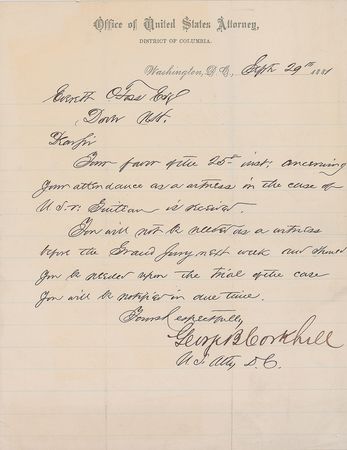 Office of United States Attorney,
DISTRICT OF COLUMBIA.
Washington, D.C., Sept 29th 1881
Everett O Foss Esq
Dover N.H.
Dear Sir
Your favor of the inst. concerning
your attendance as a witness in the case of
U.S. v. Guiteau is received.
You will not be needed as a witness
before the Grand Jury next week and should
you be needed upon the trial of the case
you will be notified in due time.
Yours Respectfully
George B Corkhill
U.S. Atty D.C.